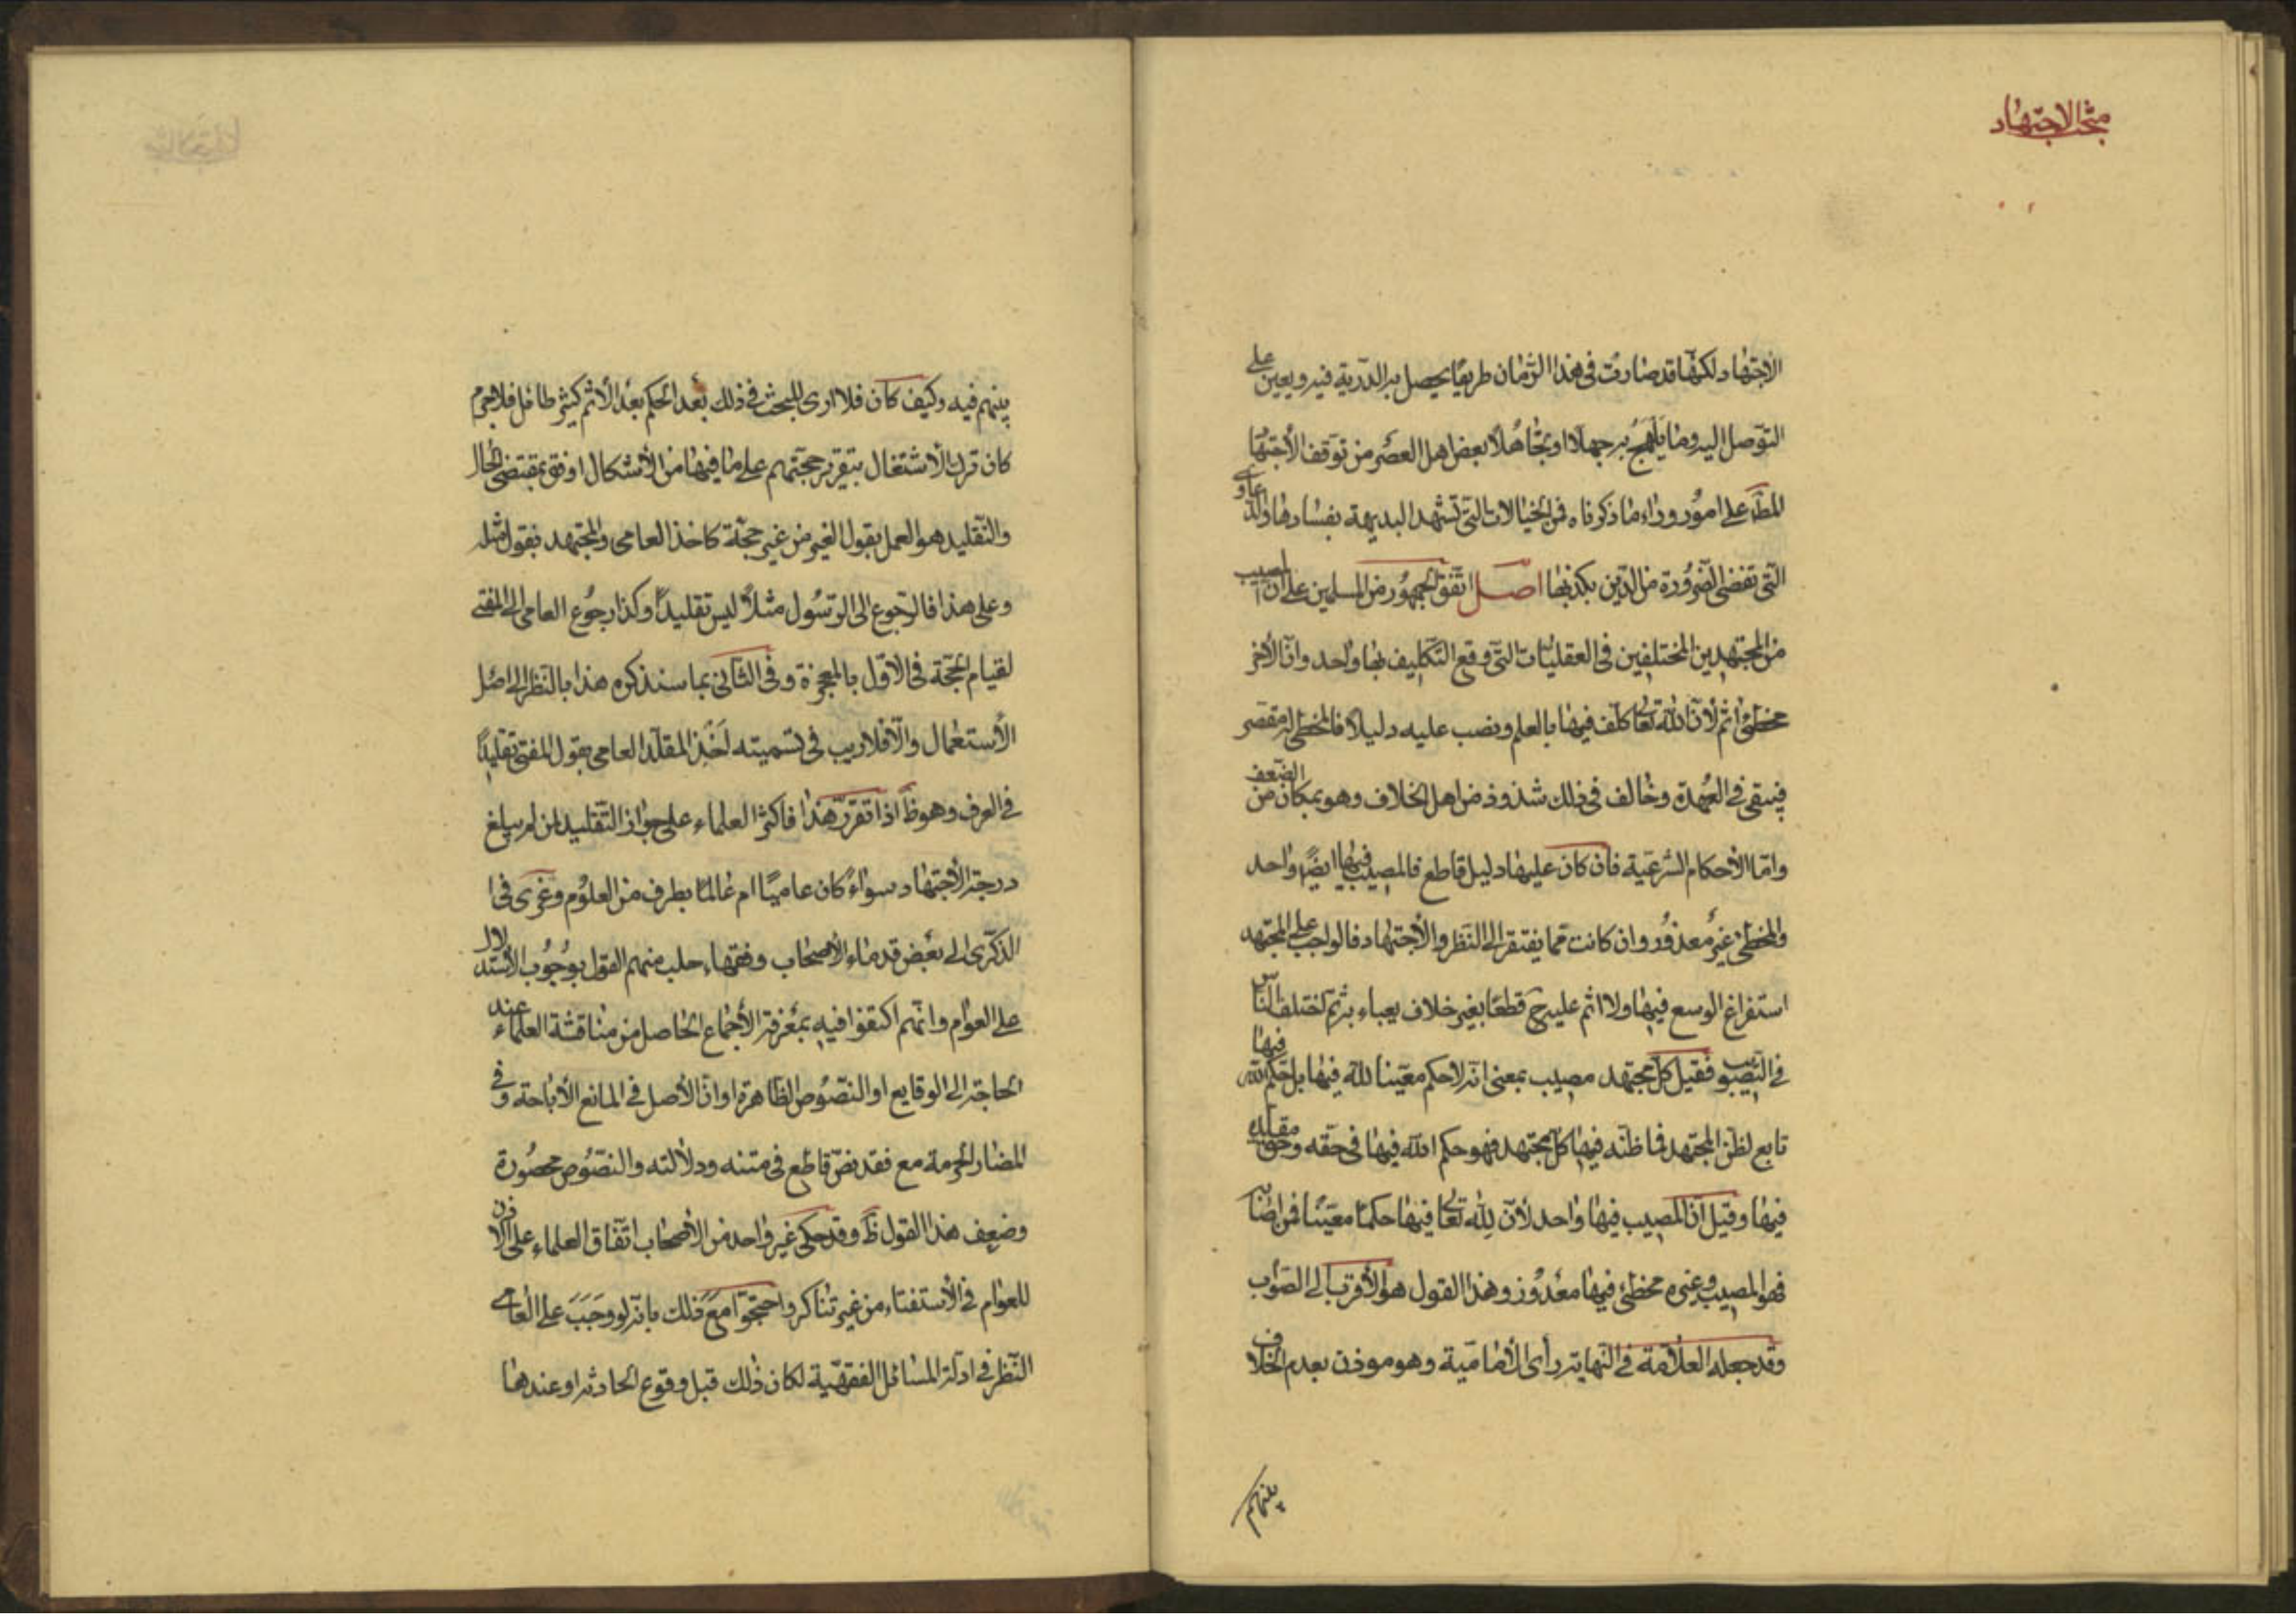 مبحث الاجتهاد
الاجتهاد ولكنها قد صارت فى هذا الزمان طريقا يحصل به الدربة فيه ويعين على
التوصل اليه وما يلهج به جهلا او تجاهلا بعض اهل العصر من توقف الاجتهاد
المط على امور وراء ما ذكرناه فمن الخيالات التى تشهد البديهة بفسادها والدعاوى
التى تقضى الضرورة من الدين بكذبها اصل اتفق الجمهور من المسلمين على ان المصيب
من المجتهدين المختلفين فى العقليات التى وقع التكليف بها واحد وان الاخر
مخطئ اثم لان الله تعالى كلف فيها بالعلم ونصب عليه دليلا فالمخطى له مقصر
فيبقى فى العهدة وخالف فى ذلك شذوذ من اهل الخلاف وهو بمكان من الضعف
واما الاحكام الشرعية فان كان عليها دليل قاطع فالمصيب فيها ايضا واحد
والمخطئ غير معذور وان كانت مما يفتقر الى النظر والاجتهاد فالواجب على المجتهد
استفراغ الوسع فيها ولا اثم عليه ح قطعا بغير خلاف يعباء به ثم اختلف الناس
فى التصويب فقيل كل مجتهد مصيب بمعنى انه لا حكم معينا لله فيها بل حكم الله فيها
تابع لظن المجتهد فما ظنه فيها كل مجتهد فهو حكم الله فيها فى حقه وحق مقلده
فيها وقيل ان المصيب فيها واحد لان لله تعالى فيها حكما معينا فمن اصابه
فهو المصيب وغيره مخطئ فيها معذور وهذا القول هو الاقرب الى الصواب
وقد جعله العلامة فى النهاية رأى الامامية وهو موذن بعدم الخلاف
بينهم
بينهم فيه وكيف كان فلا ارى للبحث فى ذلك بعد الحكم بعد الاثم كثير طائل فلا جرم
كان ترك الاشتغال بتقرير حجتهم على ما فيها من الاشكال اوفق بمقتضى الحال
والتقليد هو العمل بقول الغير من غير حجة كاخذ العامى والمجتهد بقول مثله
وعلى هذا فالرجوع الى الرسول مثلا ليس تقليدا وكذا رجوع العامى الى المفتى
لقيام الحجة فى الاول بالمعجزة وفى الثانى بما سنذكره هذا بالنظر الى اصل
الاستعمال والا فلا ريب فى تسميته اخذ المقلد العامى بقول المفتى تقليدا
فى العرف وهو ظ اذا تقرر هذا فاكثر العلماء على جواز التقليد لمن لم يبلغ
درجة الاجتهاد سواء كان عاميا ام عالما بطرف من العلوم وعزى فى
الذكرى الى بعض قدماء الاصحاب وفقهاء حلب منهم القول بوجوب الاستدلال
على العوام وانهم اكتفوا فيه بمعرفة الاجماع الحاصل من مناقشة العلماء عند
الحاجة الى الوقايع او النصوص الظاهرة او ان الاصل فى المنافع الاباحة وفى
المضار الحرمة مع فقد نص قاطع فى متنه ودلالته والنصوص محصورة
وضعف هذا القول ظ وقد حكى غير واحد من الاصحاب اتفاق العلماء على الاذن
للعوام فى الاستفتاء من غير تناكر واحتجوا مع ذلك بانه لو وجب على العامى
النظر فى ادلة المسائل الفقهية لكان ذلك قبل وقوع الحادثة او عندها